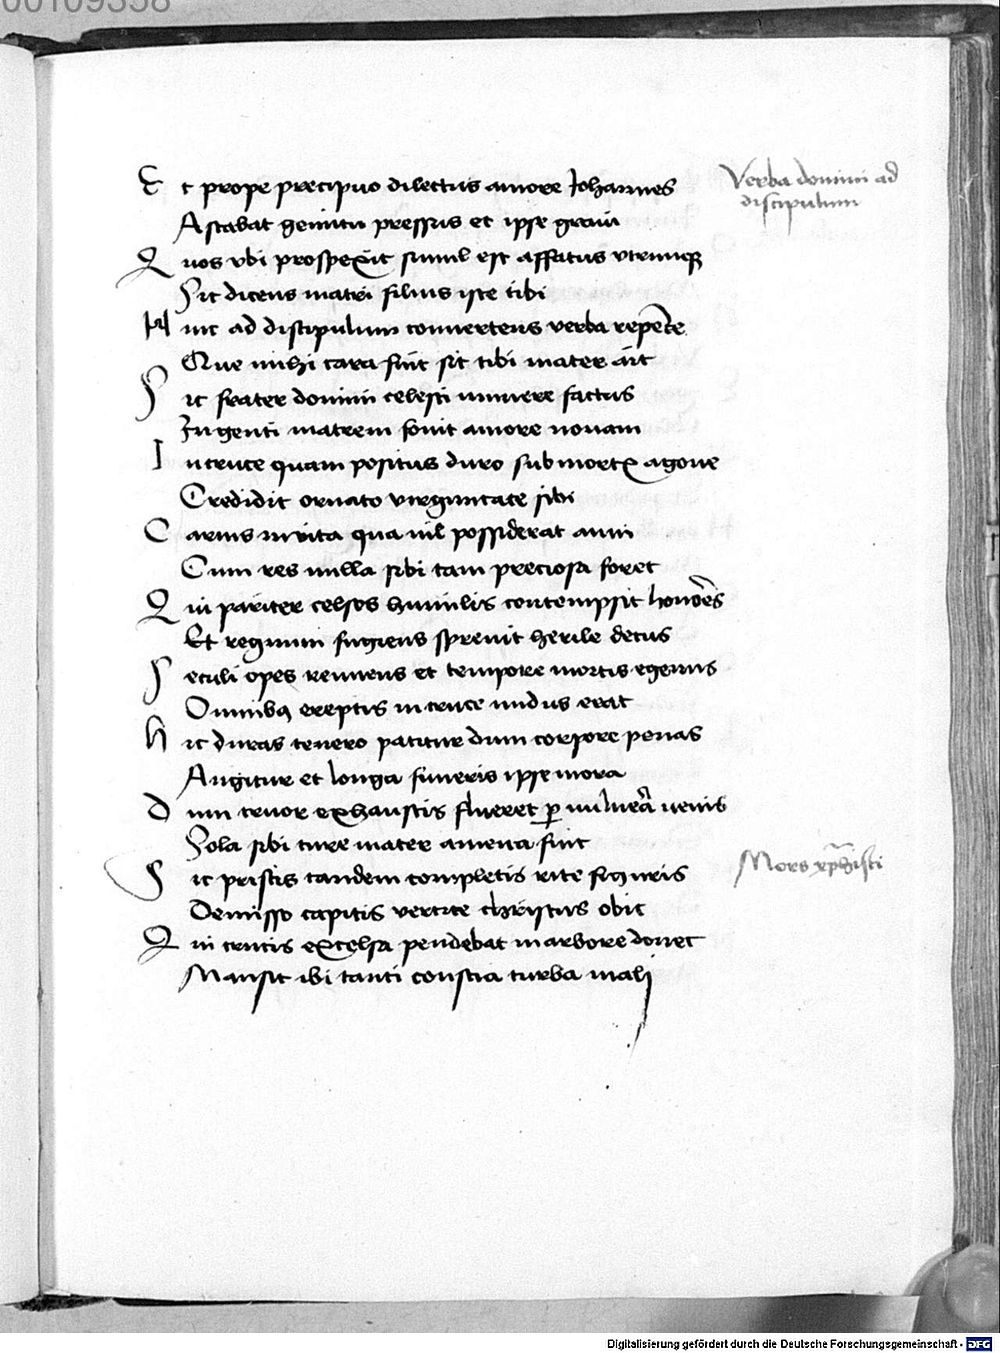 00109338
Et prope precipuo dilectus amore Johannes
Verba domini ad
discipulum
Astabat gemitu pressus et ipse graui
Quos vbi prospexit simul est affatus vtrumq
Sic dicens matri filius iste tibi
Hinc ad discipulum conuertens verba repente
Que mihi cara fuit sit tibi mater ait
Sic frater domini celesti munere factus
Ingenti matrem fouit amore nouam
In cruce quam positus duro sub mortis agone
Credidit ornato virginitate sibi
Carius in vita qua nil possiderat anni
Cum res nulla sibi tam preciosa foret
Qui pariter celsos humilis contempsit honores
Et regnum fugiens spreuit herile decus
Seculi opes renuens et tempore mortis egenus
Omnibq ereptis in cruce nudus erat
Hic duras tenero patitur dum corpore penas
Angitur et longa funeris ipse mora
Dum cruor exhaustis flueret p vulnera venis
Sola sibi ture mater amena fuit
Sic priscis tandem completis rite figuris
Mors xphristi
Demisso capitis vertice christus obit
Qui crucis excelsa pendebat in arbore donec
Mansit ibi tanti conscia turba mali
Digitalisierung gefördert durch die Deutsche Forschungsgemeinschaft - DFG